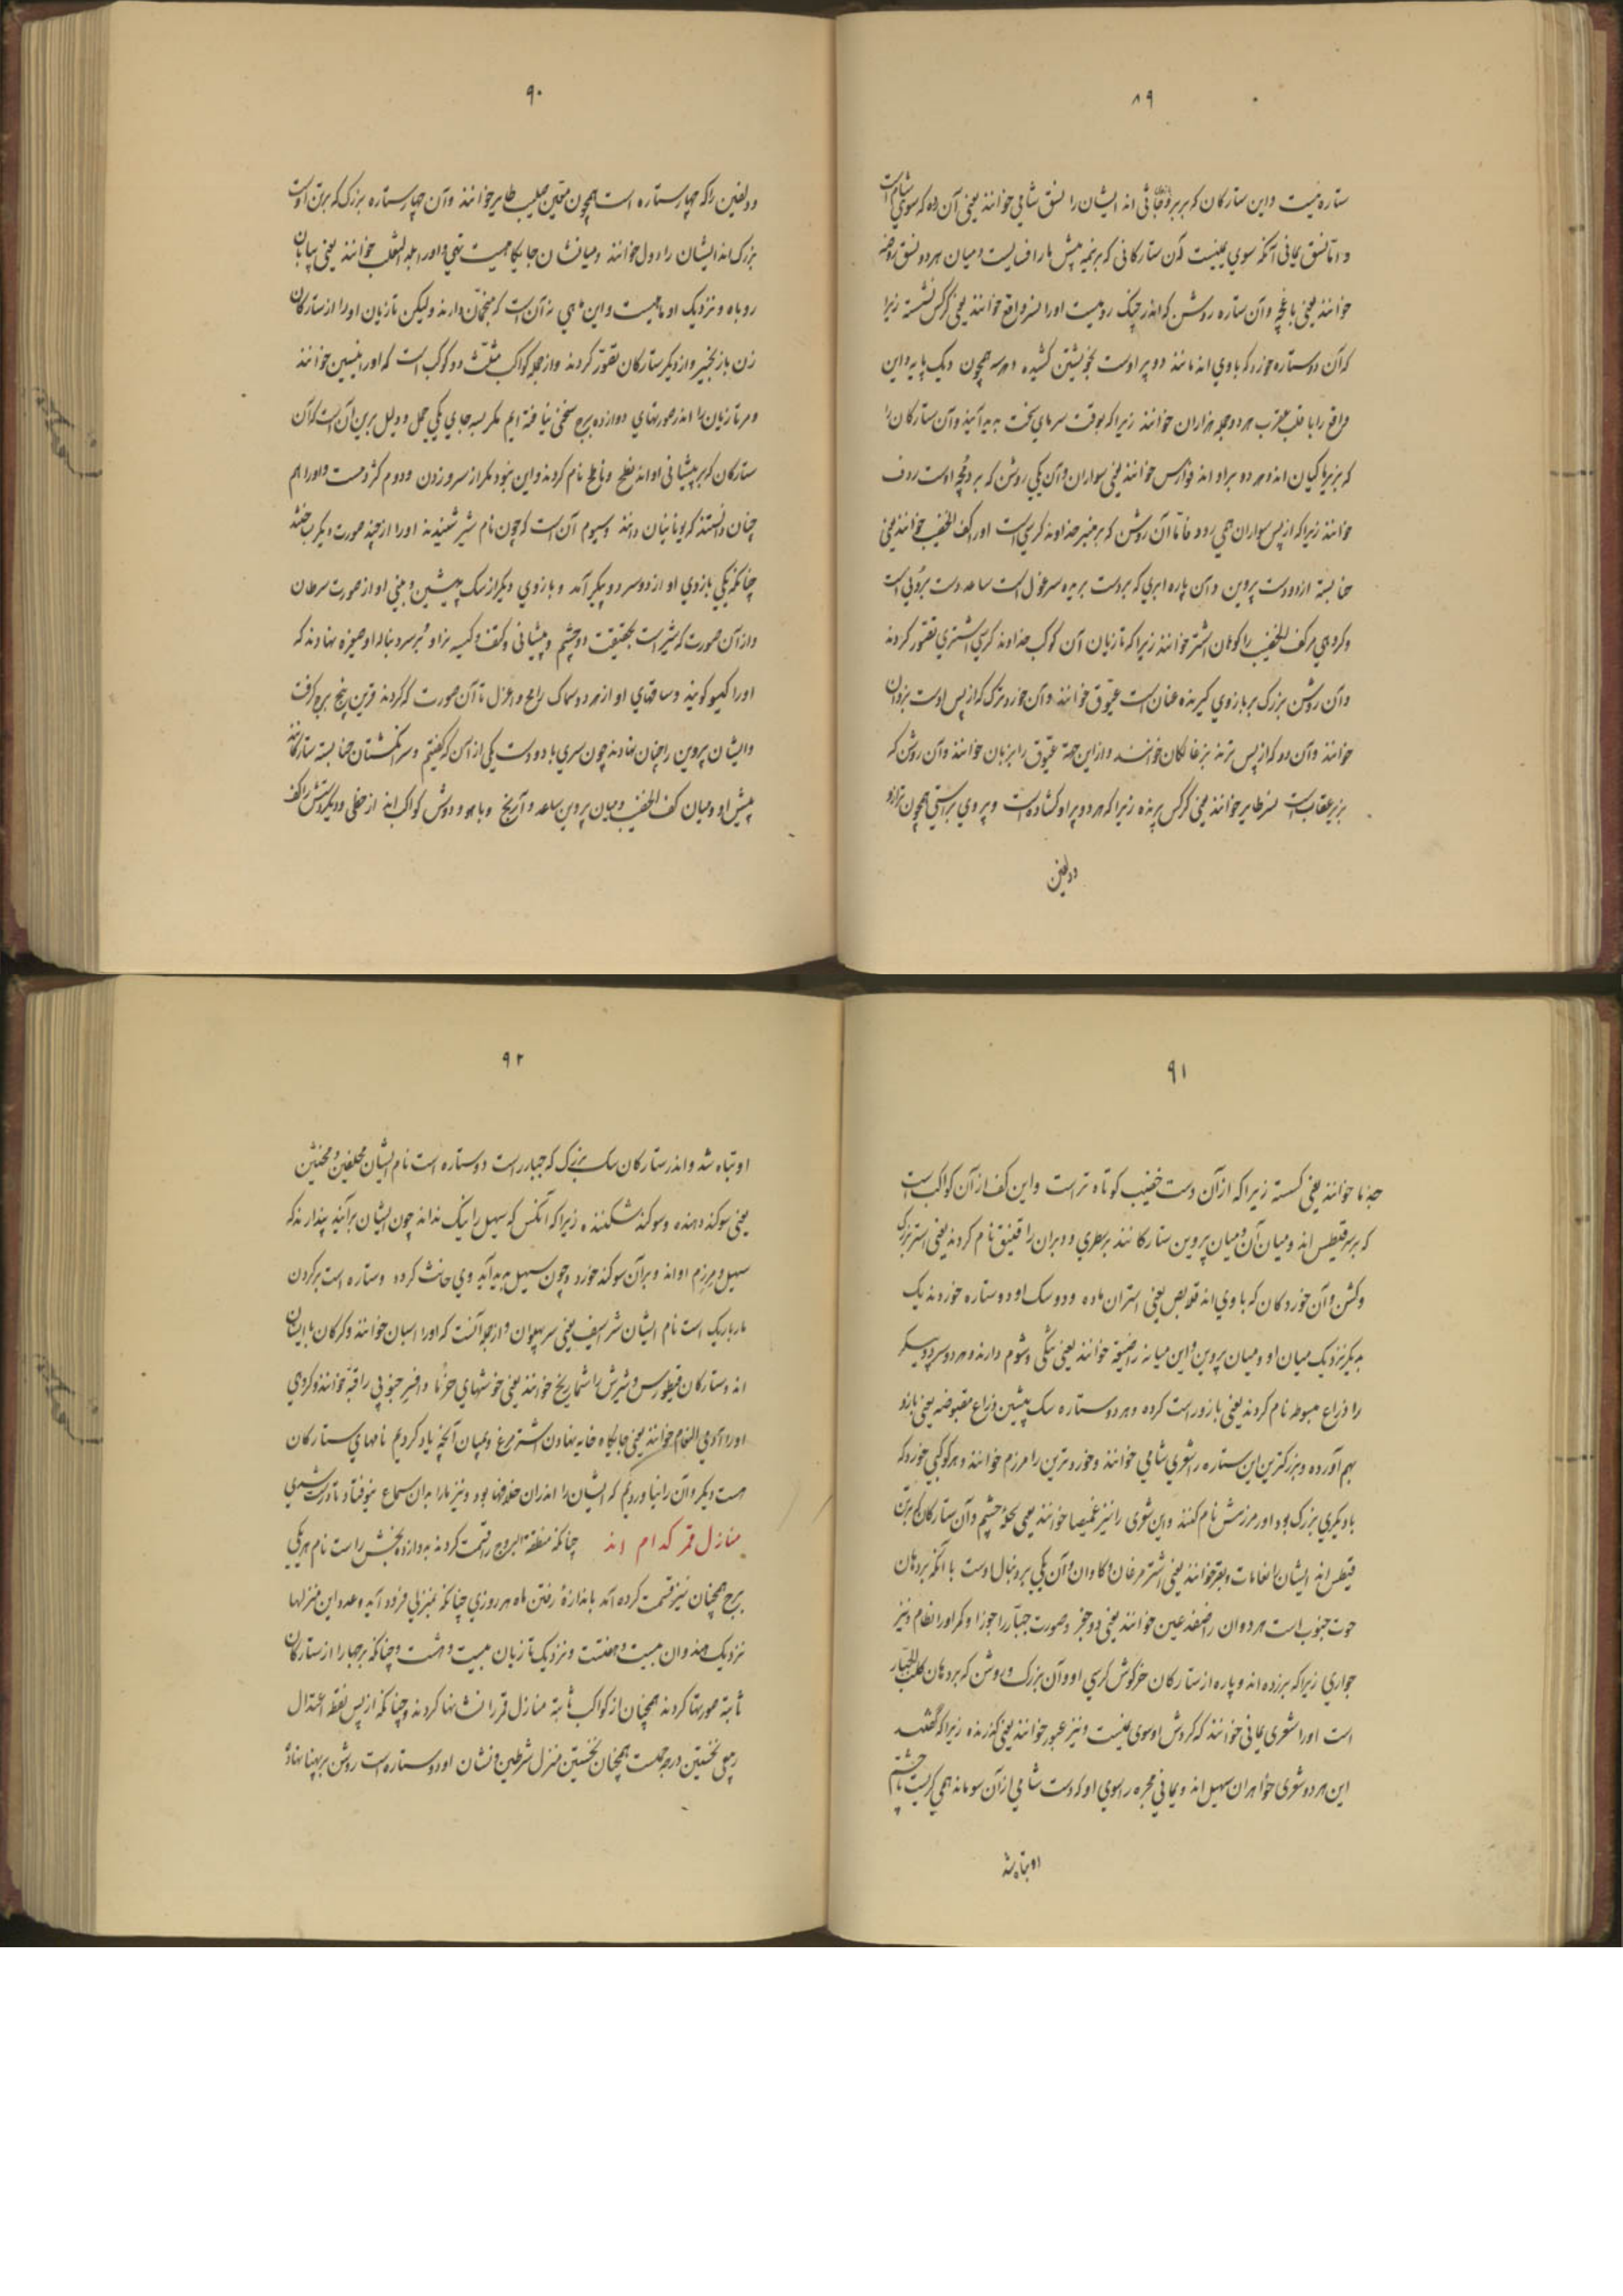 ۸۹
ستاره نیست و این ستارگان که بربر اند ایشان را نسق شامی خوانند یعنی آن رده که سوی شام است
و اما نسق یمانی آنکه سوی یمنیست آن ستارگانی که بر نیمه پیش مار افسایست و میان هر دو نسق روضه
خوانند یعنی باغچه و آن ستاره روشن که اندر چنگ رومیست اورا نسر واقع خوانند یعنی کرکس نشسته زیرا
که آن دو ستاره خورد که با وی اند مانند دو پر اوست بخویشتن کشیده و هر سه همچون دیک پایه و این
واقع را با قلب عقرب هر دو بجمله هراران خوانند زیرا که بوقت سرمای سخت پدید آیند و آن ستارگان را
که بزیر ماکیان اند و هر دو براو اند فوارس خوانند یعنی سواران و آن یکی روشن که بر دنبچه اوست ردف
خوانند زیرا که از پس سواران همی رود فاما آن روشن که بر منبر خداوند کرسی است اورا کف الخضیب خوانند یعنی
حنا بسته از دو دست پروین و آن پاره ابری که بر دست بریده سر غول است ساعد دست پروین است
و گروهی مر کف الخضیب را کوهان اشتر خوانند زیرا که تازیان آن کوکب خداوند کرسی اشتری تصور کردند
و آن روشن بزرگ بر بازوی گیرنده عنان است عیوق خوانند و آن خوردترک که از پس اوست بزوان
خوانند و آن دو که از پس ترند بزغالگان خوانند و از این جمله عیوق را بزبان خوانند و آن روشن که
بزیر عقاب است نسر طایر خوانند یعنی کرکس پرنده زیرا که هر دو پر او گشاده است و بر وی براستی همچون ترازو
ودلفین
۹۰
ودلفین را که چهار ستاره است همچون معین صلیب طایر خوانند و آن چهار ستاره بزرگ که برتن اوست
بزرگ اند ایشان را دول خوانند و میانشان جایگاهیست تهی و اورا بلدة الثعلب خوانند یعنی بیابان
روباه و نزدیک او ماهیست و این ماهی نه آن است که منجمان دارند ولیکن تازیان اورا از ستارگان
زن با زنجیر و از دیگر ستارگان تصور کردند و از جمله کواکب مثلث دو کوکب است که اورا انیسین خوانند
و مر تازیان را اندر صورتهای دوازده برج سخنی نیافته ایم مگر بسه جای یکی حمل و دلیل برین آن است که آن
ستارگان که بر پیشانی او اند نطح و ناطح نام کردند و این نبود مگر از سروزدن و دوم کژدمست و اورا هم
چنان دانستند که یونانیان دانند و سیوم آن است که چون نام شیر شنیدند اورا از چند صورت دیگر ببخشند
چنانکه یکی بازوی او از دو سر دو پیکر آمد و بازوی دیگر از سک پیشین و بینی او از صورت سرطان
و از آن صورت که شیر است بحقیقت دو چشم و پیشانی و کتف و کیسه نزاو و بر سر دنباله او صفیره نهادند که
اورا گیسو گویند و ساقهای او از هر دو سماک رامح و اعزل تا آن صورت که کردند قرین پنج برج گرفت
و ایشان پروین را چنان نهادند چون سری با دو دست یکی از این که گفتیم و سر انگشتان حنا بسته ستارگانند
پیش او و میان کف الخضیب و میان پروین ساعد و آرنج و بازو و دوش کواکب اند از خطی و دیگر دستش را کف
۹۱
جذما خوانند یعنی گسسته زیرا که از آن دست خضیب کوتاه تر است و این کف از آن کواکب است
که بر سر قیطس اند و میان آن و میان پروین ستارگانند بر سطری و دبران را فنیق نام کردند یعنی اشتر بزرگ
و گشن و آن خوردگان که با وی اند قلایص یعنی اشتران ماده و دو سک او دو ستاره خوردند یک
بدیگر نزدیک میان او و میان پروین و این میانه را ضیقه خوانند یعنی تنگی و شوم دارند و هر دو سر دو پیکر
را ذراع مبسوطه نام کردند یعنی باز و راست کرده و هر دو ستاره سک پیشین ذراع مقبوضه یعنی بازو
بهم آورده و بزرگترین این ستاره را شعری شامی خوانند و خوردترین را مرزم خوانند و هر کوکبی خورد که
با دیگری بزرگ بود اورا مرزمش نام کنند و این شعری را نیز غمیصا خوانند یعنی بخوه چشم و آن ستارگان که برتن
قیطس اند ایشان را نعامات و بقر خوانند یعنی اشتر مرغان و گاوان و آن یکی بر دنبال اوست با آنکه بر دهان
حوت جنوب است هر دوان را ضفدعین خوانند یعنی دو چغز و صورت جبار را جوزا و کمر اورا نظام و نیز
جواری زیرا که برزده اند و پاره از ستارگان خرگوش کرسی او و آن بزرگ و روشن که بر دهان کلب الجبار
است اورا شعری یمانی خوانند که گردش او سوی یمنیست و نیز عبور خوانند یعنی گذرنده زیرا که گفتند
این هر دو شعری خواهران سهیل اند و یمانی مجره را سوی او گذشت شامی از آن سو مانده همی گریست تا چشم
او تباه شد
۹۲
او تباه شد و اندر ستارگان سک بزرگ که جبار راست دو ستاره است نام ایشان محلفین و محنثین
یعنی سوگند دهنده و سوگند شکننده زیرا که آنکس که سهیل را نیک نداند چون ایشان برآیند پندارند که
سهیل و مرزم او اند و بر آن سوگند خورد و چون سهیل پدید آید وی حانث گردد و ستاره است بر گردن
مار باریک است نام ایشان شراسیف یعنی سر پهلوان و از جمله آنست که اورا اسبان خوانند و کرکان با ایشان
اند و ستارگان قیطورس و شیرش را شماریخ خوانند یعنی خوشهای خرما و افسر جنوبی را قبه خوانند و گروهی
اورا ادحی النعام خوانند یعنی جایگاه خایه نهادن اشتر مرغ و بمیان آنچه یاد کردیم نامهای ستارگان
هست دیگر و آن را نیاوردیم که ایشان را اندران خلافها بود و نیز مارا بدان سماع نیوفتاد تا درست شدی
منازل قمر کدام اند چنانکه منطقة البروج را قسمت کردند بدوازده بخش راست نام هر یکی
برج همچنان نیز قسمت کرده آمد باندازهٔ رفتن ماه هر روزی چنانکه بمنزلی فرود آید و عدد این منزلها
نزدیک هندوان بیست و هفتست و نزدیک تازیان بیست و هشت و چنانکه برجها را از ستارگان
ثابته صورتها کردند همچنان از کواکب ثابته منازل قمر را نشانها کردند و چنانکه از پس نقطه اعتدال
ربیعی نخستین درجه حملست همچنان نخستین منزل شرطین و نشان او دو ستاره است روشن بر پهنا نهاده